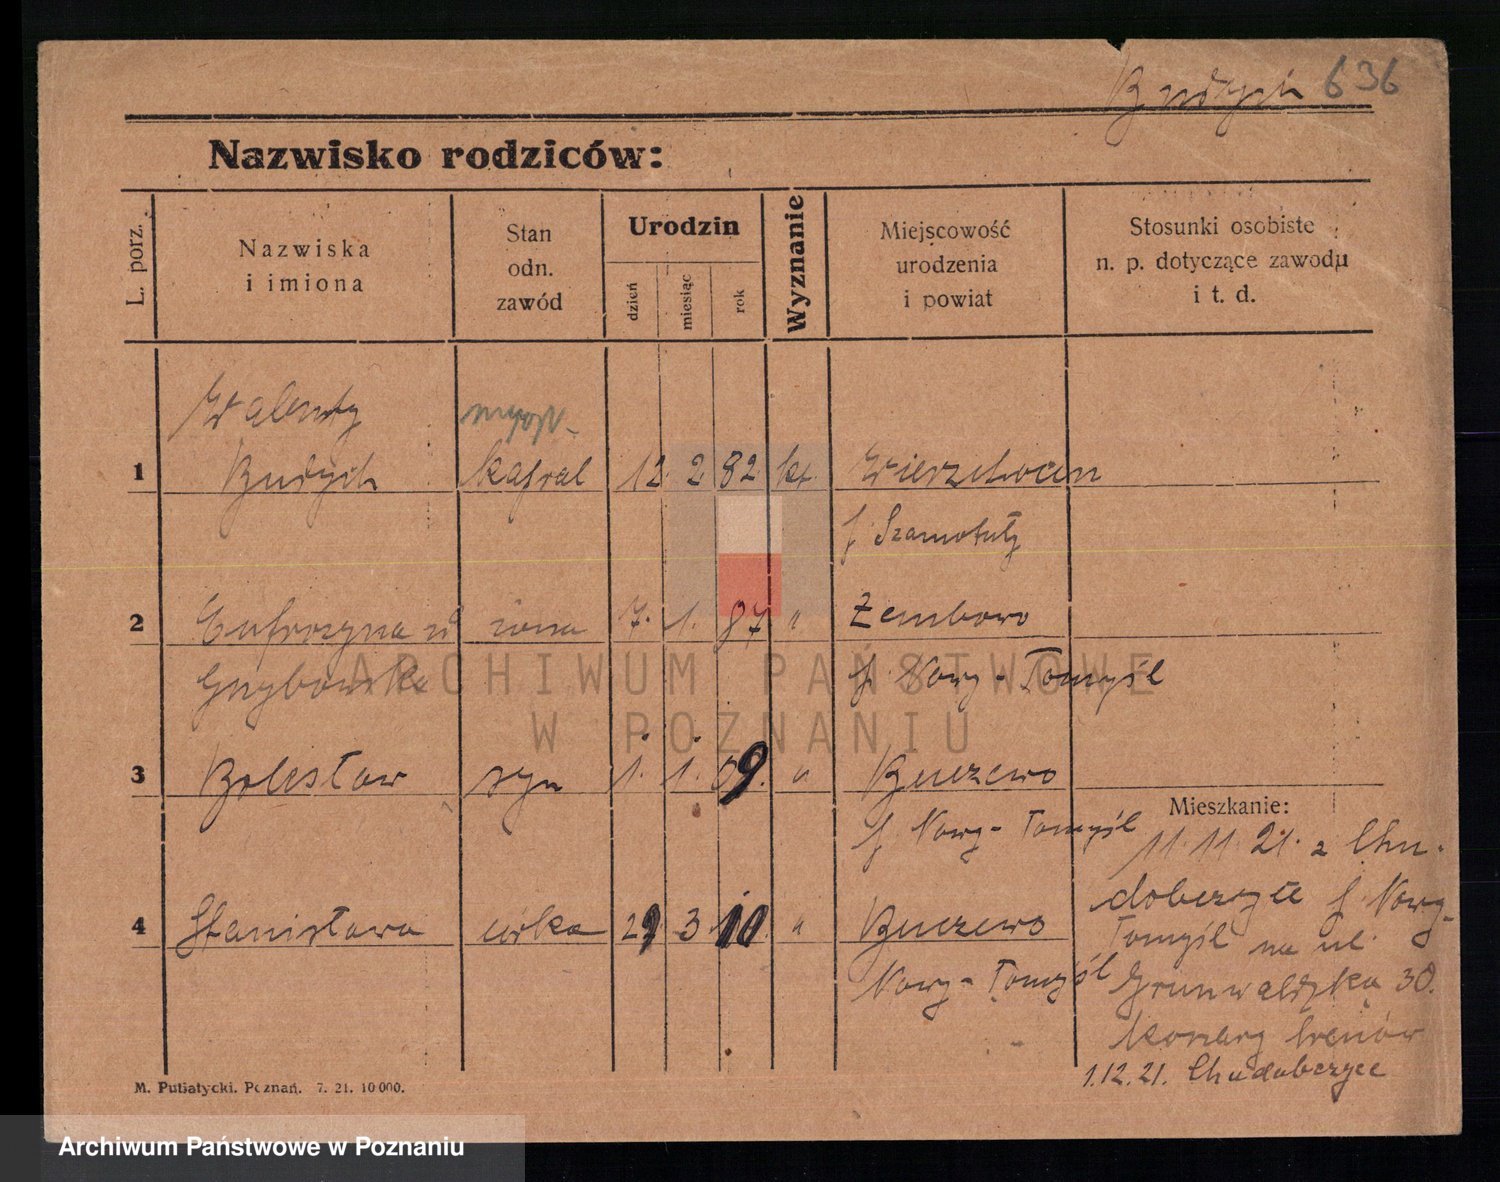 Budych 636
Nazwisko rodziców:
L. porz.
Nazwiska
i imiona
Stan
odn.
zawód
Urodzin
dzień
miesiąc
rok
Wyznanie
Miejscowość
urodzenia
i powiat
Stosunki osobiste
n. p. dotyczące zawodu
i t. d.
Walenty
1 Budych kapral 12. 2. 82. kt. Wierzchocin
p. Szamotuły
2 Eufrozyna żona 7. 1. 87 " Zembowo
Grzybowska p Nowy-Tomyśl
3 Bolesław syn 1. 1. 09. " Buczewo
p Nowy-Tomyśl
4 Stanisława córka 29 3 10. " Buczewo
Nowy-Tomyśl
Mieszkanie:
11. 11. 21. z Chu-
dobczyce p Nowy-
Tomyśl na ul.
Grunwaldzka 30.
1.12.21. Chudobczyce
M. Putiatycki. Poznań. 7. 21. 10 000.
ARCHIWUM PAŃSTWOWE
W POZNANIU
Archiwum Państwowe w Poznaniu